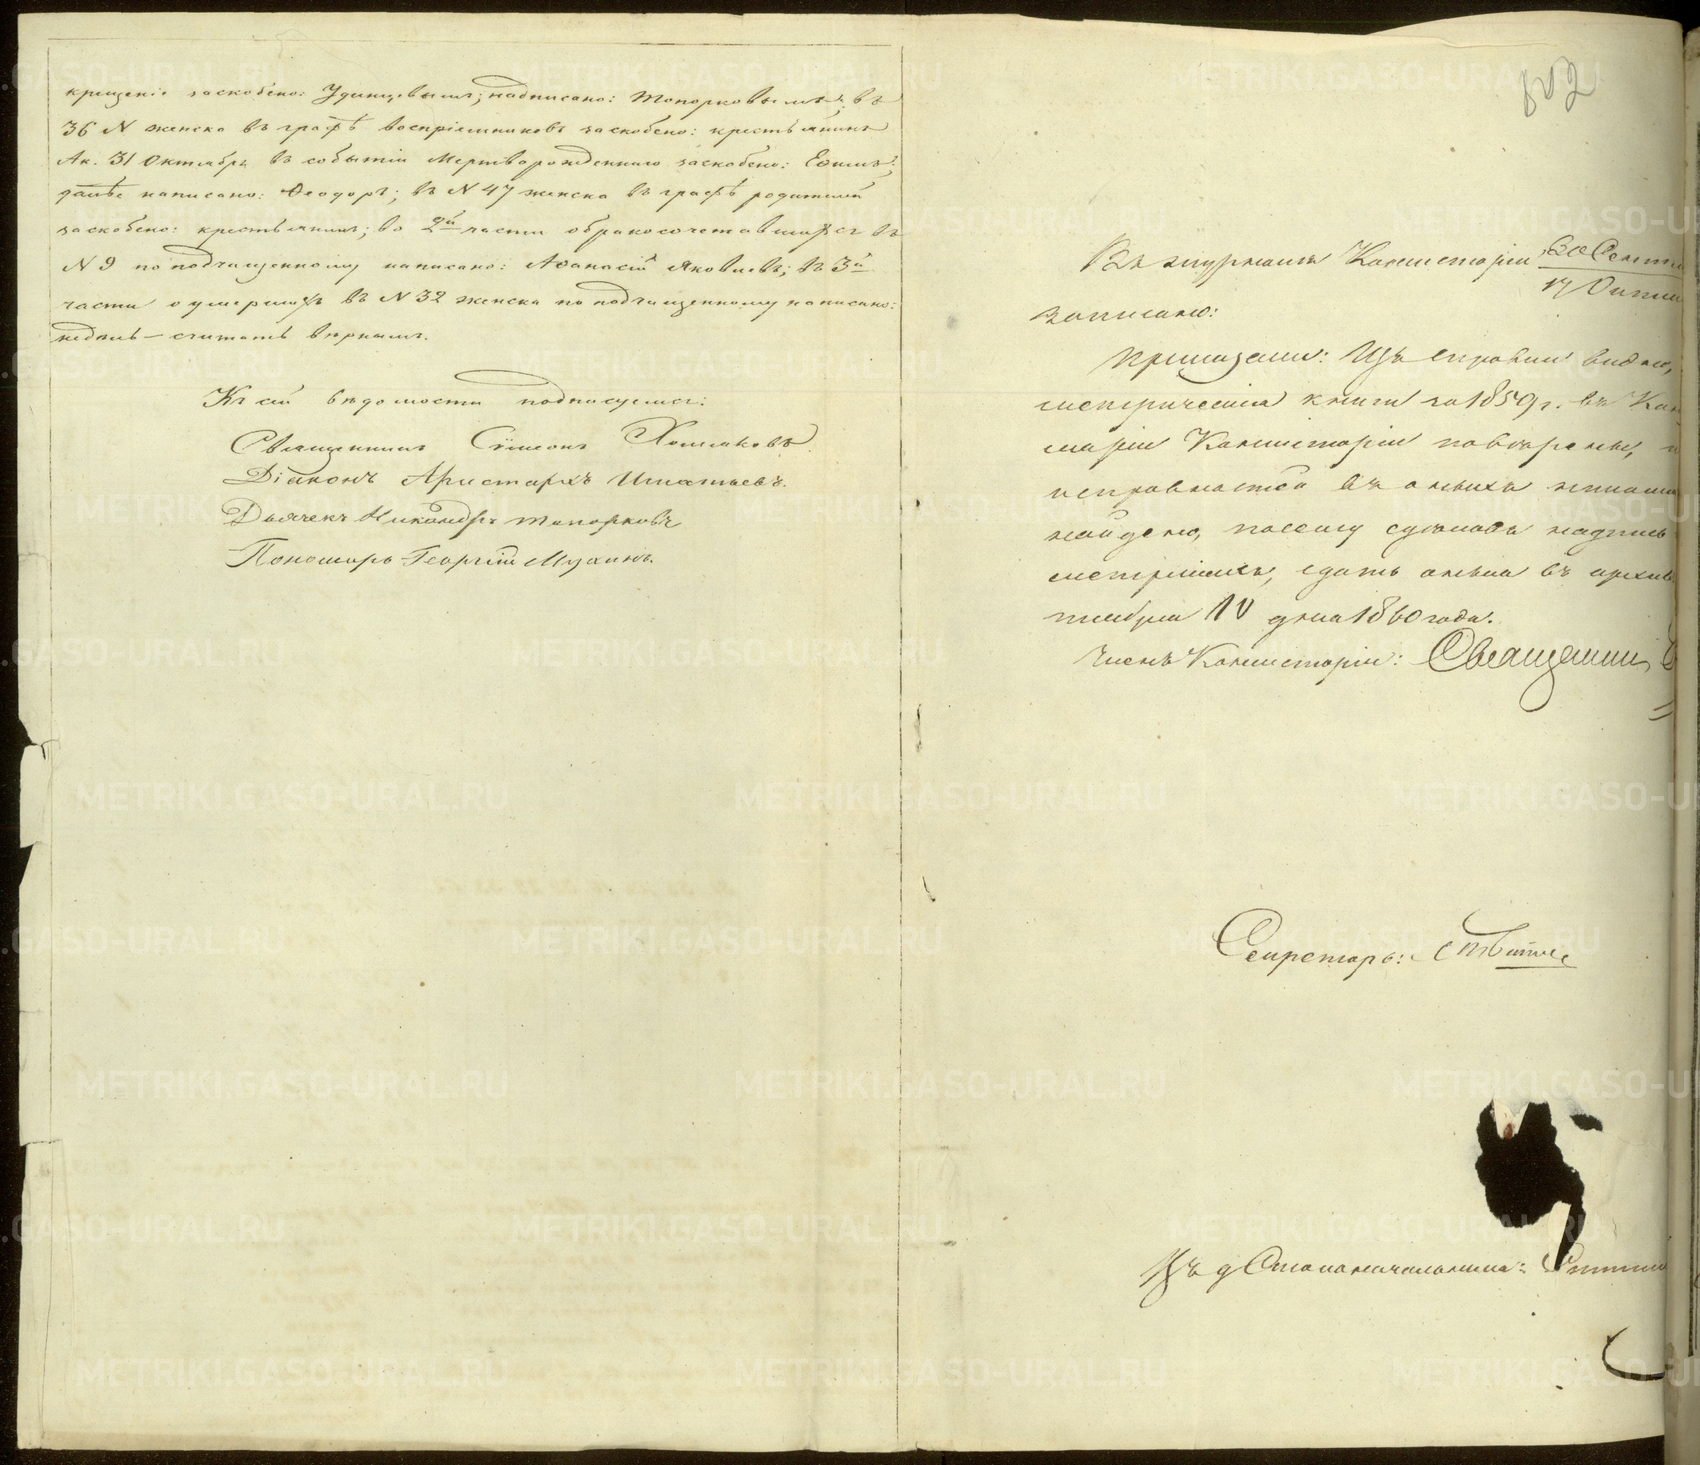 крещеніе заскоблено: Удинцевымъ; надписано: Топорковымъ; въ
36 N женска въ графѣ воспріемниковъ заскоблено: крестьянинъ
Ак. 31 Октября въ событіи Мертворожденнаго заскоблено: Ефимъ;
далѣе написано: Ѳеодоръ; въ N 47 женска въ графѣ родителей
заскоблено: крестьянинъ; во 2й части о бракосочетавшихся въ
N 9 по подчищенному написано: Аѳанасій Яковлевъ; въ 3й
части о умершихъ въ N 32 женска по подчищенному написано:
недѣль — считать вѣрнымъ.
Къ сей вѣдомости подписуемся:
Священникъ Сѵмеонъ Хомяковъ.
Діаконъ Аристархъ Игнатьевъ.
Дьячекъ Никандръ Топорковъ
Пономарь Георгій Мухинъ.
802
Въ журналѣ Консисторіи 20 Сентя
17 Октя
записано:
Приказали: Изъ справки видно,
метрическія книги за 1859 г. въ Кан
цляріи Консисторіи повѣрены, и
исправности въ оныхъ
найдено, посему сдѣлавъ надпись
метрикахъ, сдать оныя въ архивъ
10 дня 1860 года.
Членъ Консисторіи: Священникъ
Секретарь:
Столоначальника:
METRIKI.GASO-URAL.RU